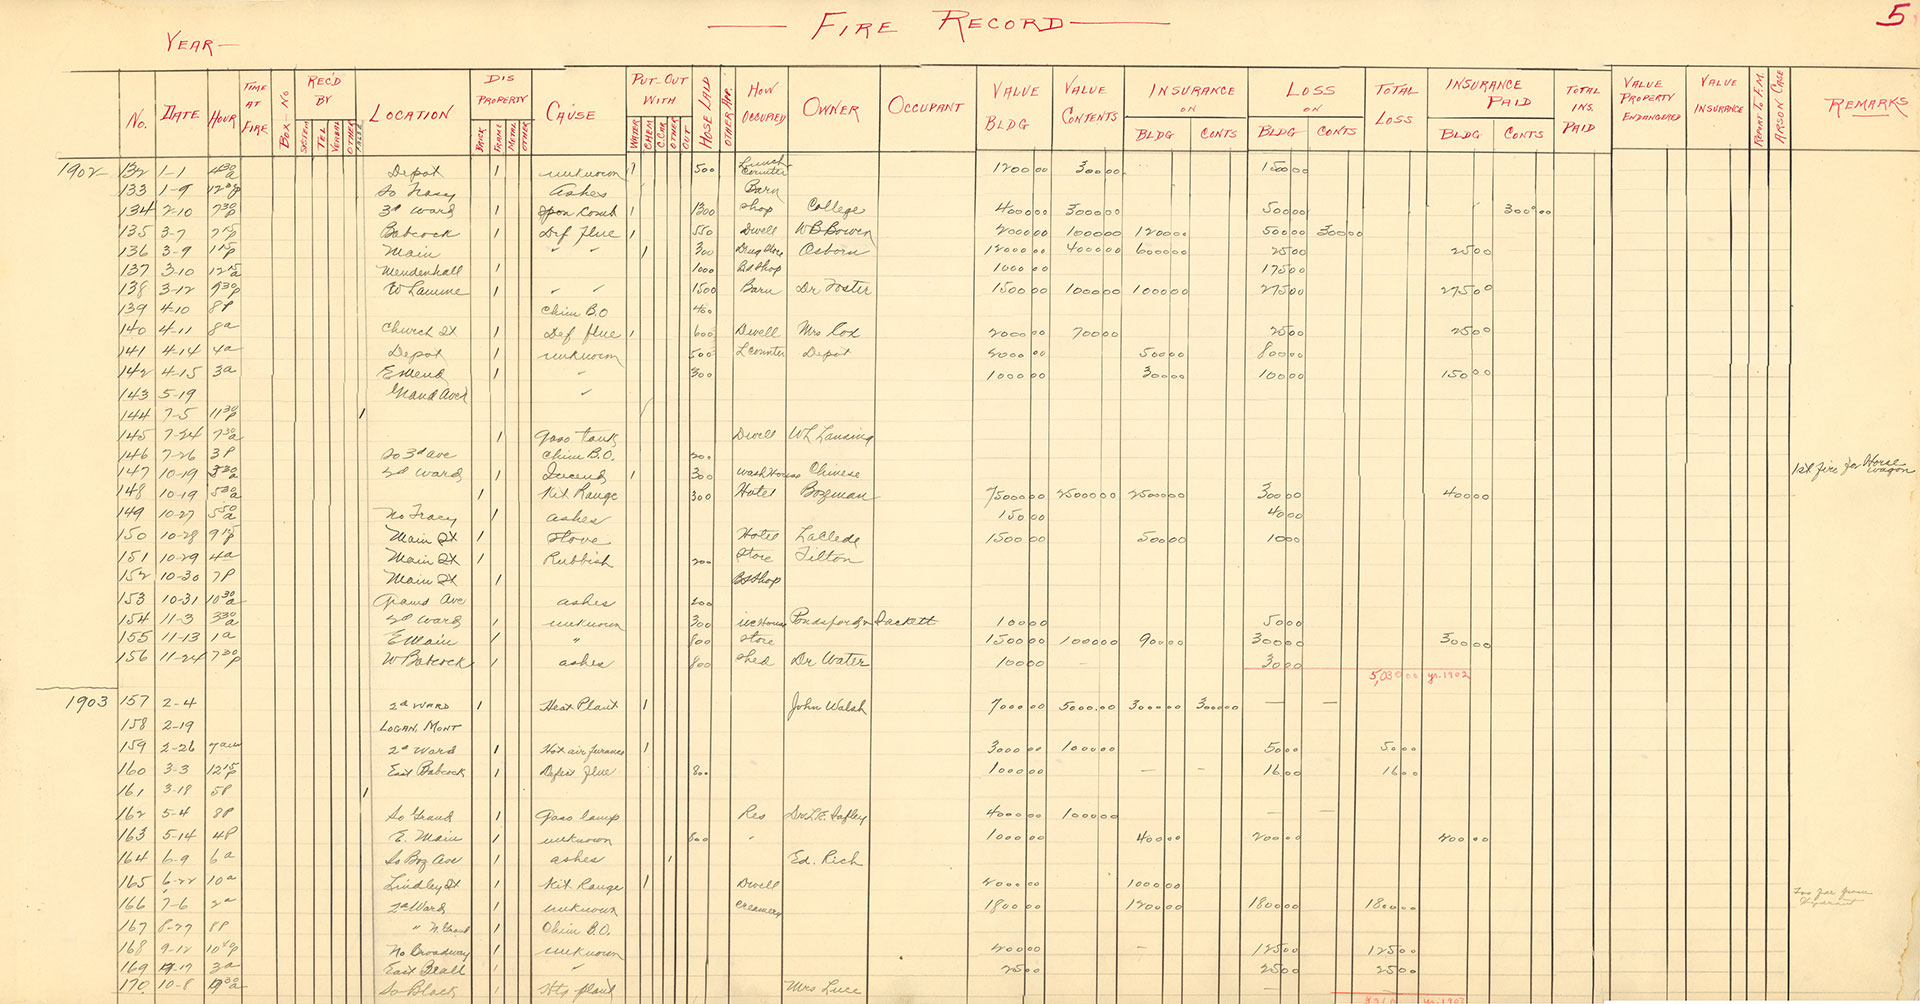 FIRE RECORD 5
YEAR—
No. DATE HOUR TIME AT FIRE BOX-NO REC'D BY SYSTEM TEL VERBAL OTHER FALSE LOCATION DIS PROPERTY BRICK FRAME METAL OTHER CAUSE PUT-OUT WITH WATER CHEM C.CAR OTHER OUT HOSE LAID OTHER APP. HOW OCCUPIED OWNER OCCUPANT VALUE BLDG VALUE CONTENTS INSURANCE ON BLDG CONTS LOSS ON BLDG CONTS TOTAL LOSS INSURANCE PAID BLDG CONTS TOTAL INS. PAID VALUE PROPERTY ENDANGERED VALUE INSURANCE REPORT TO F.M. ARSON CASE REMARKS
1902 132 1-1 Depot 1 unknown 1 500 Lunch Counter 1200 00 300 00 150 00
133 1-9 So Tracy 1 Ashes Barn
134 2-10 7 30 P 3d Ward 1 Spon Comb 1 1300 Shop College 4000 00 3000 00 500 00 300 00
135 3-7 7 15 P Babcock 1 Def flue 1 550 Dwell W B Bowen 2000 00 1000 00 1200 00 500 00 300 00
136 3-9 1 15 P Main 1 " " 1 300 Drug Store Osborn 1200 00 4000 00 6000 00 25 00 25 00
137 3-10 12 15 a Mendenhall 1 1000 Bd Shop 1000 00 175 00
138 3-12 9 30 P W Lamme 1 " " 1500 Barn Dr Foster 1500 00 1000 00 1000 00 275 00 275 0
139 4-10 8P Chim B.O 400
140 4-11 8a Church St 1 Def flue 1 600 Dwell Mrs Cox 2000 00 700 00 25 00 25 00
141 4-14 4a Depot 1 unknown 500 L counter Depot 2000 00 500 00 800 00
142 4-15 3a E Mend 1 " 300 1000 00 300 00 100 00 150 00
143 5-19 Grand Ave "
144 7-5 11 30 P 1
145 7-24 7 30 a 1 Gaso tank Dwell W L Lansing
146 7-26 3P So 3d ave Chim B.O. 200
147 10-19 3 30 a 2d Ward 1 Incend 1 300 Wash House Chinese 1st fire for Horse wagon
148 10-19 5 30 a 1 Kit Range 300 Hotel Bozeman 75000 00 25000 00 25000 00 300 00 400 00
149 10-27 5 50 a No Tracy 1 ashes 150 00 40 00
150 10-28 9 15 P Main St 1 Stove Hotel LaClede 1500 00 500 00 10 00
151 10-29 4a Main St 1 Rubbish 200 Store Tilton
152 10-30 7P Main St 1 Bd Shop
153 10-31 10 30 a Grand Ave ashes 200
154 11-3 3 30 a 2d Ward 1 unknown 300 Ponsford & Sackett 100 00 50 00
155 11-13 1a E Main 1 " 800 Store 1500 00 1000 00 900 00 3000 00 300 00
156 11-24 7 30 P W Babcock 1 ashes 800 Shed Dr Water 100 00 — 30 00
5,030 00 yr. 1902
1903 157 2-4 2d WARD 1 Heat Plant 1 John Walsh 7000 00 5000.00 3000 00 3000 00 — —
158 2-19 LOGAN, MONT
159 2-26 7am 2d Ward 1 Hot air furnace 1 3000 00 1000 00 50 00 50 00
160 3-3 12 15 P East Babcock 1 Defect flue 800 1000 00 — — 16 00 16 00
161 3-18 5P 1
162 5-4 8P So Grand 1 Gaso lamp Res 4000 00 1000 00 — —
163 5-14 4P E. Main 1 unknown 800 " 1000 00 400 00 200 00 200 00
164 6-9 6a So Boz Ave 1 ashes 1 Ed. Rich
165 6-22 10a Lindley St 1 Kit Range 1 Dwell 2000 00 1000 00
166 7-6 2a 2d Ward 1 unknown Creamery 1800 00 1200 00 1800 00 1800 00 Too far from Hydrant
167 8-27 8P " N. Grand Chim B.O.
168 9-12 No Broadway 1 unknown 2000 00 — 125 00 125 00
169 9-17 3a East Beall 1 " 25 00 25 00 25 00
170 10-8 So Black 1 Htg plant Mrs Luce — —
yr. 1903